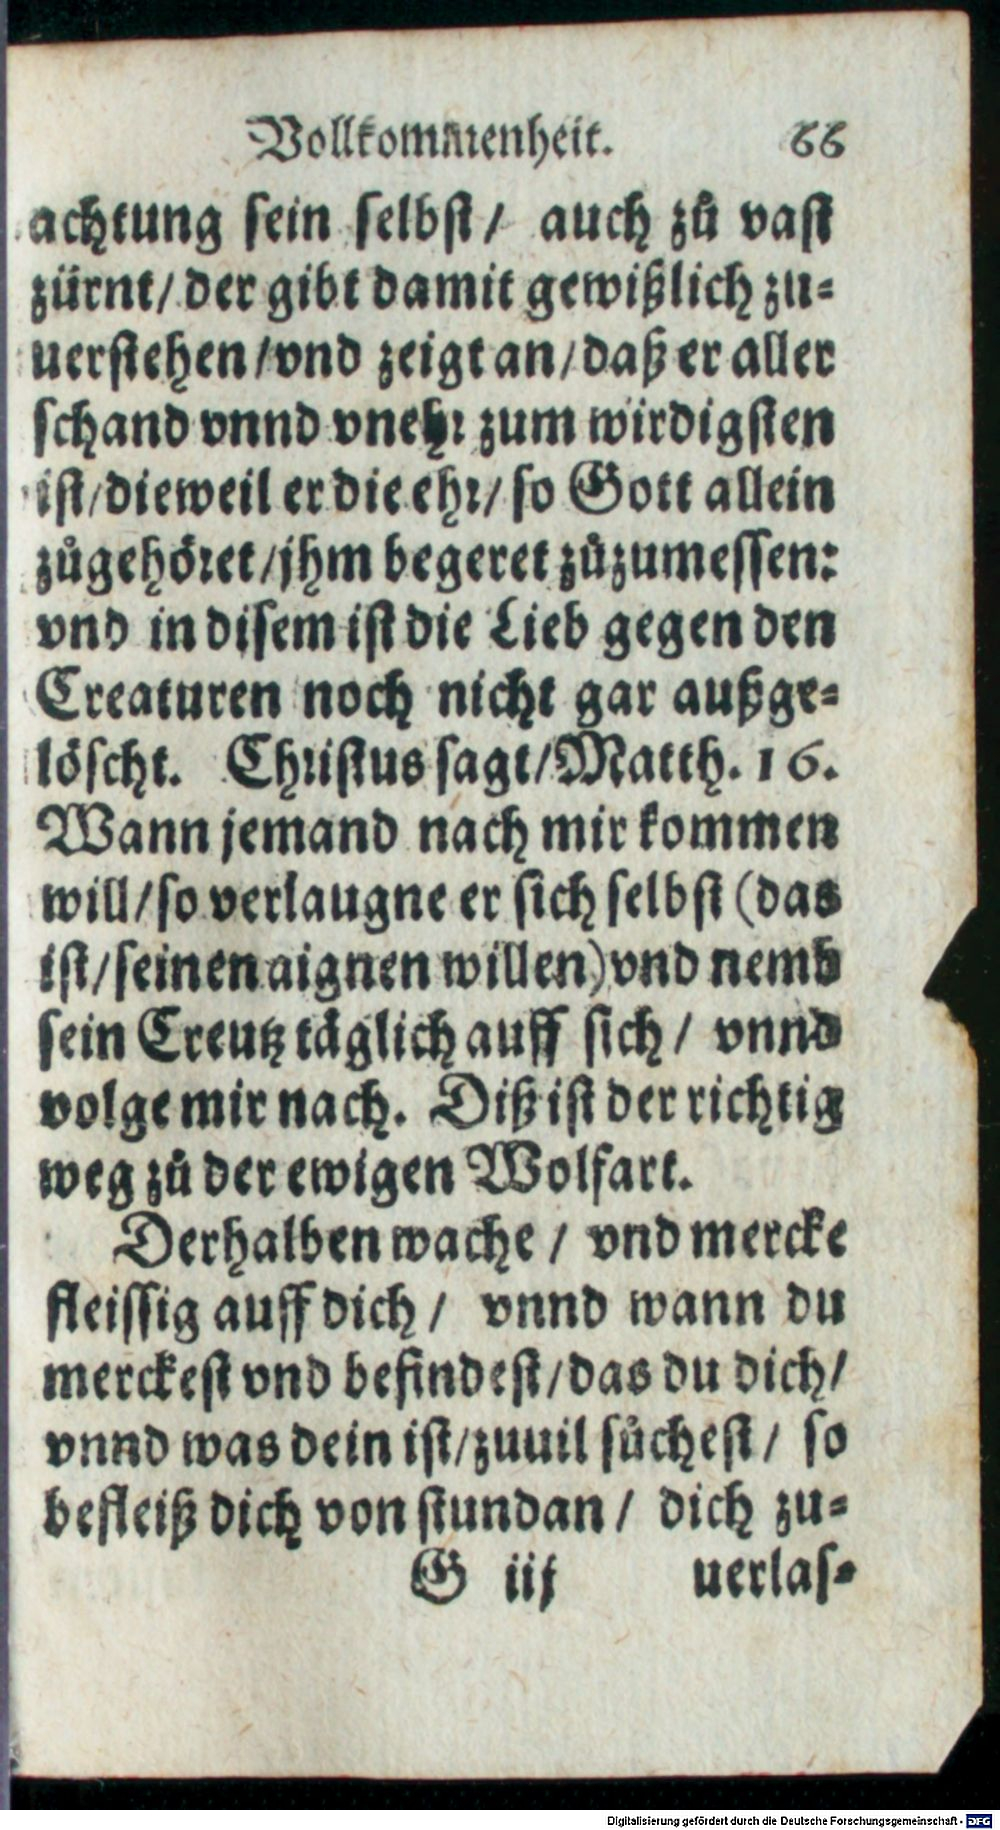 Vollkommenheit. 66
achtung sein selbst / auch zů vast
zürnt / der gibt damit gewißlich zu-
uerstehen / vnd zeigt an / daß er aller
schand vnnd vnehr zum wirdigsten
ist / dieweil er die ehr / so Gott allein
zůgehöret / jhm begeret zůzumessen:
vnd in disem ist die Lieb gegen den
Creaturen noch nicht gar außge-
löscht. Christus sagt / Matth. 16.
Wann jemand nach mir kommen
will / so verlaugne er sich selbst (das
ist / seinen aignen willen) vnd nemb
sein Creutz täglich auff sich / vnnd
volge mir nach. Diß ist der richtig
weg zů der ewigen Wolfart.
Derhalben wache / vnd mercke
fleissig auff dich / vnnd wann du
merckest vnd befindest / das du dich /
vnnd was dein ist / zuuil sůchest / so
befleiß dich von stundan / dich zu-
G iij uerlas-
Digitalisierung gefördert durch die Deutsche Forschungsgemeinschaft - DFG